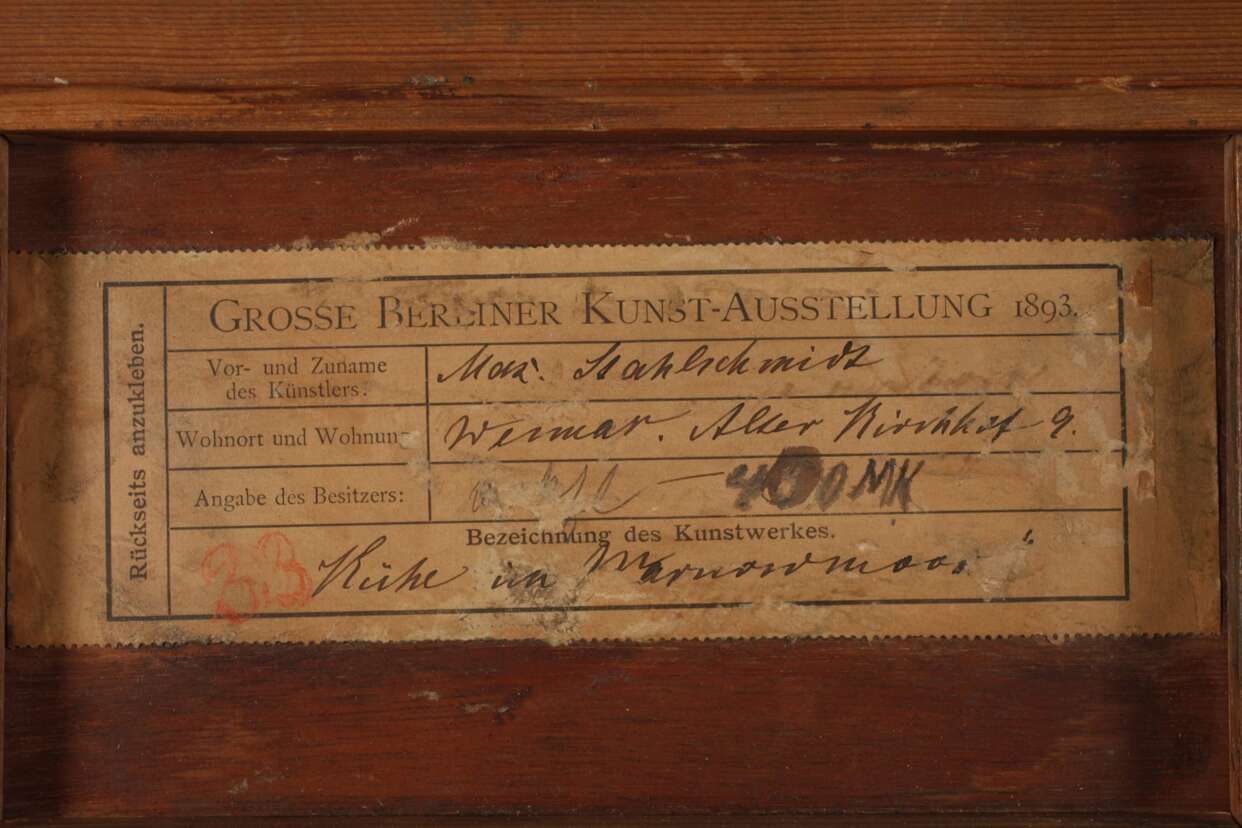 Rückseits anzukleben.
GROSSE BERLINER KUNST-AUSSTELLUNG 1893.
Vor- und Zuname
des Künstlers:
Max. Stahlschmidt
Wohnort und Wohnung
Weimar. Alter Kirchhof 9.
Angabe des Besitzers:
400 MK
Bezeichnung des Kunstwerkes.
33
Kühe im Warnowmoor"